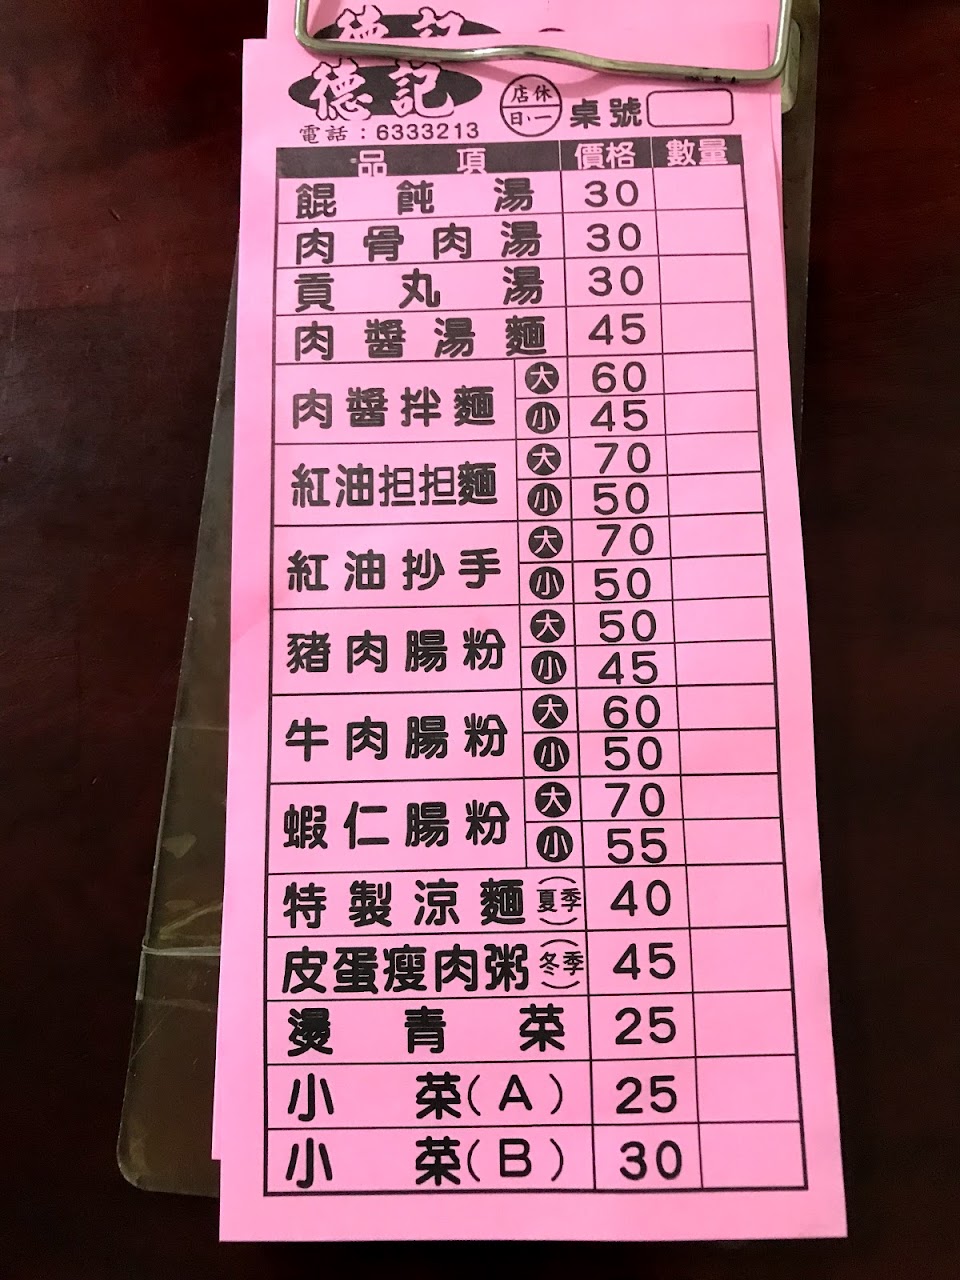 德記
德記
店休
日:一
桌號
電話：6333213
品項 價格 數量
餛飩湯 30
肉骨肉湯 30
貢丸湯 30
肉醬湯麵 45
肉醬拌麵 大 60
小 45
紅油担担麵 大 70
小 50
紅油抄手 大 70
小 50
豬肉腸粉 大 50
小 45
牛肉腸粉 大 60
小 50
蝦仁腸粉 大 70
小 55
特製涼麵(夏季) 40
皮蛋瘦肉粥(冬季) 45
燙青菜 25
小菜(A) 25
小菜(B) 30